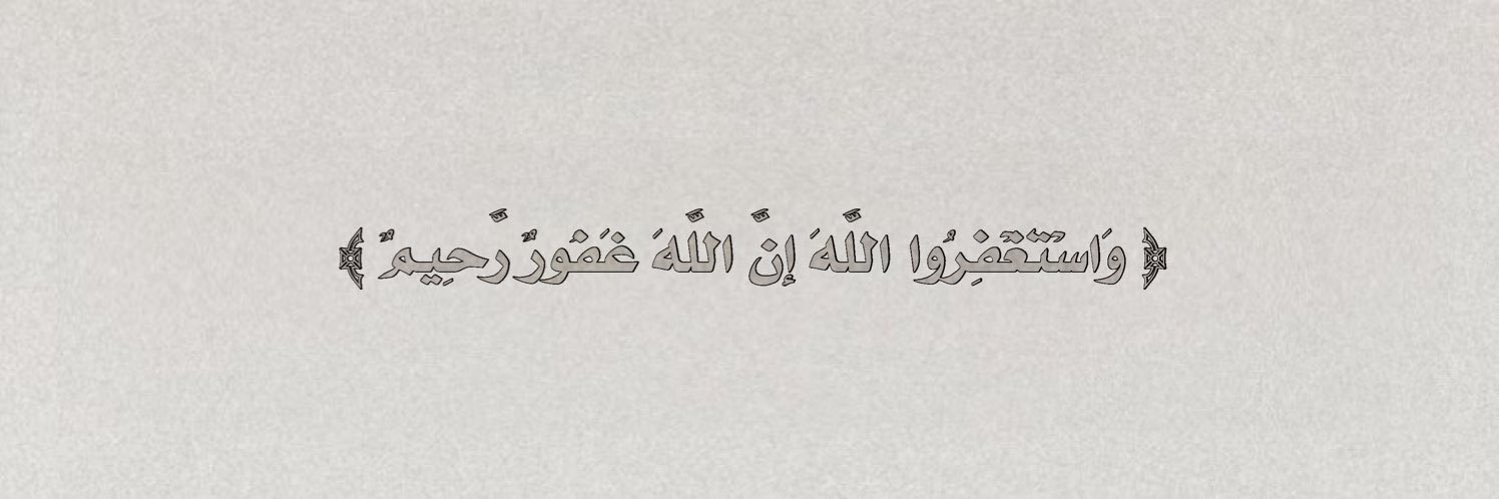 ﴿ وَاسْتَغْفِرُوا اللَّهَ إِنَّ اللَّهَ غَفُورٌ رَّحِيمٌ ﴾